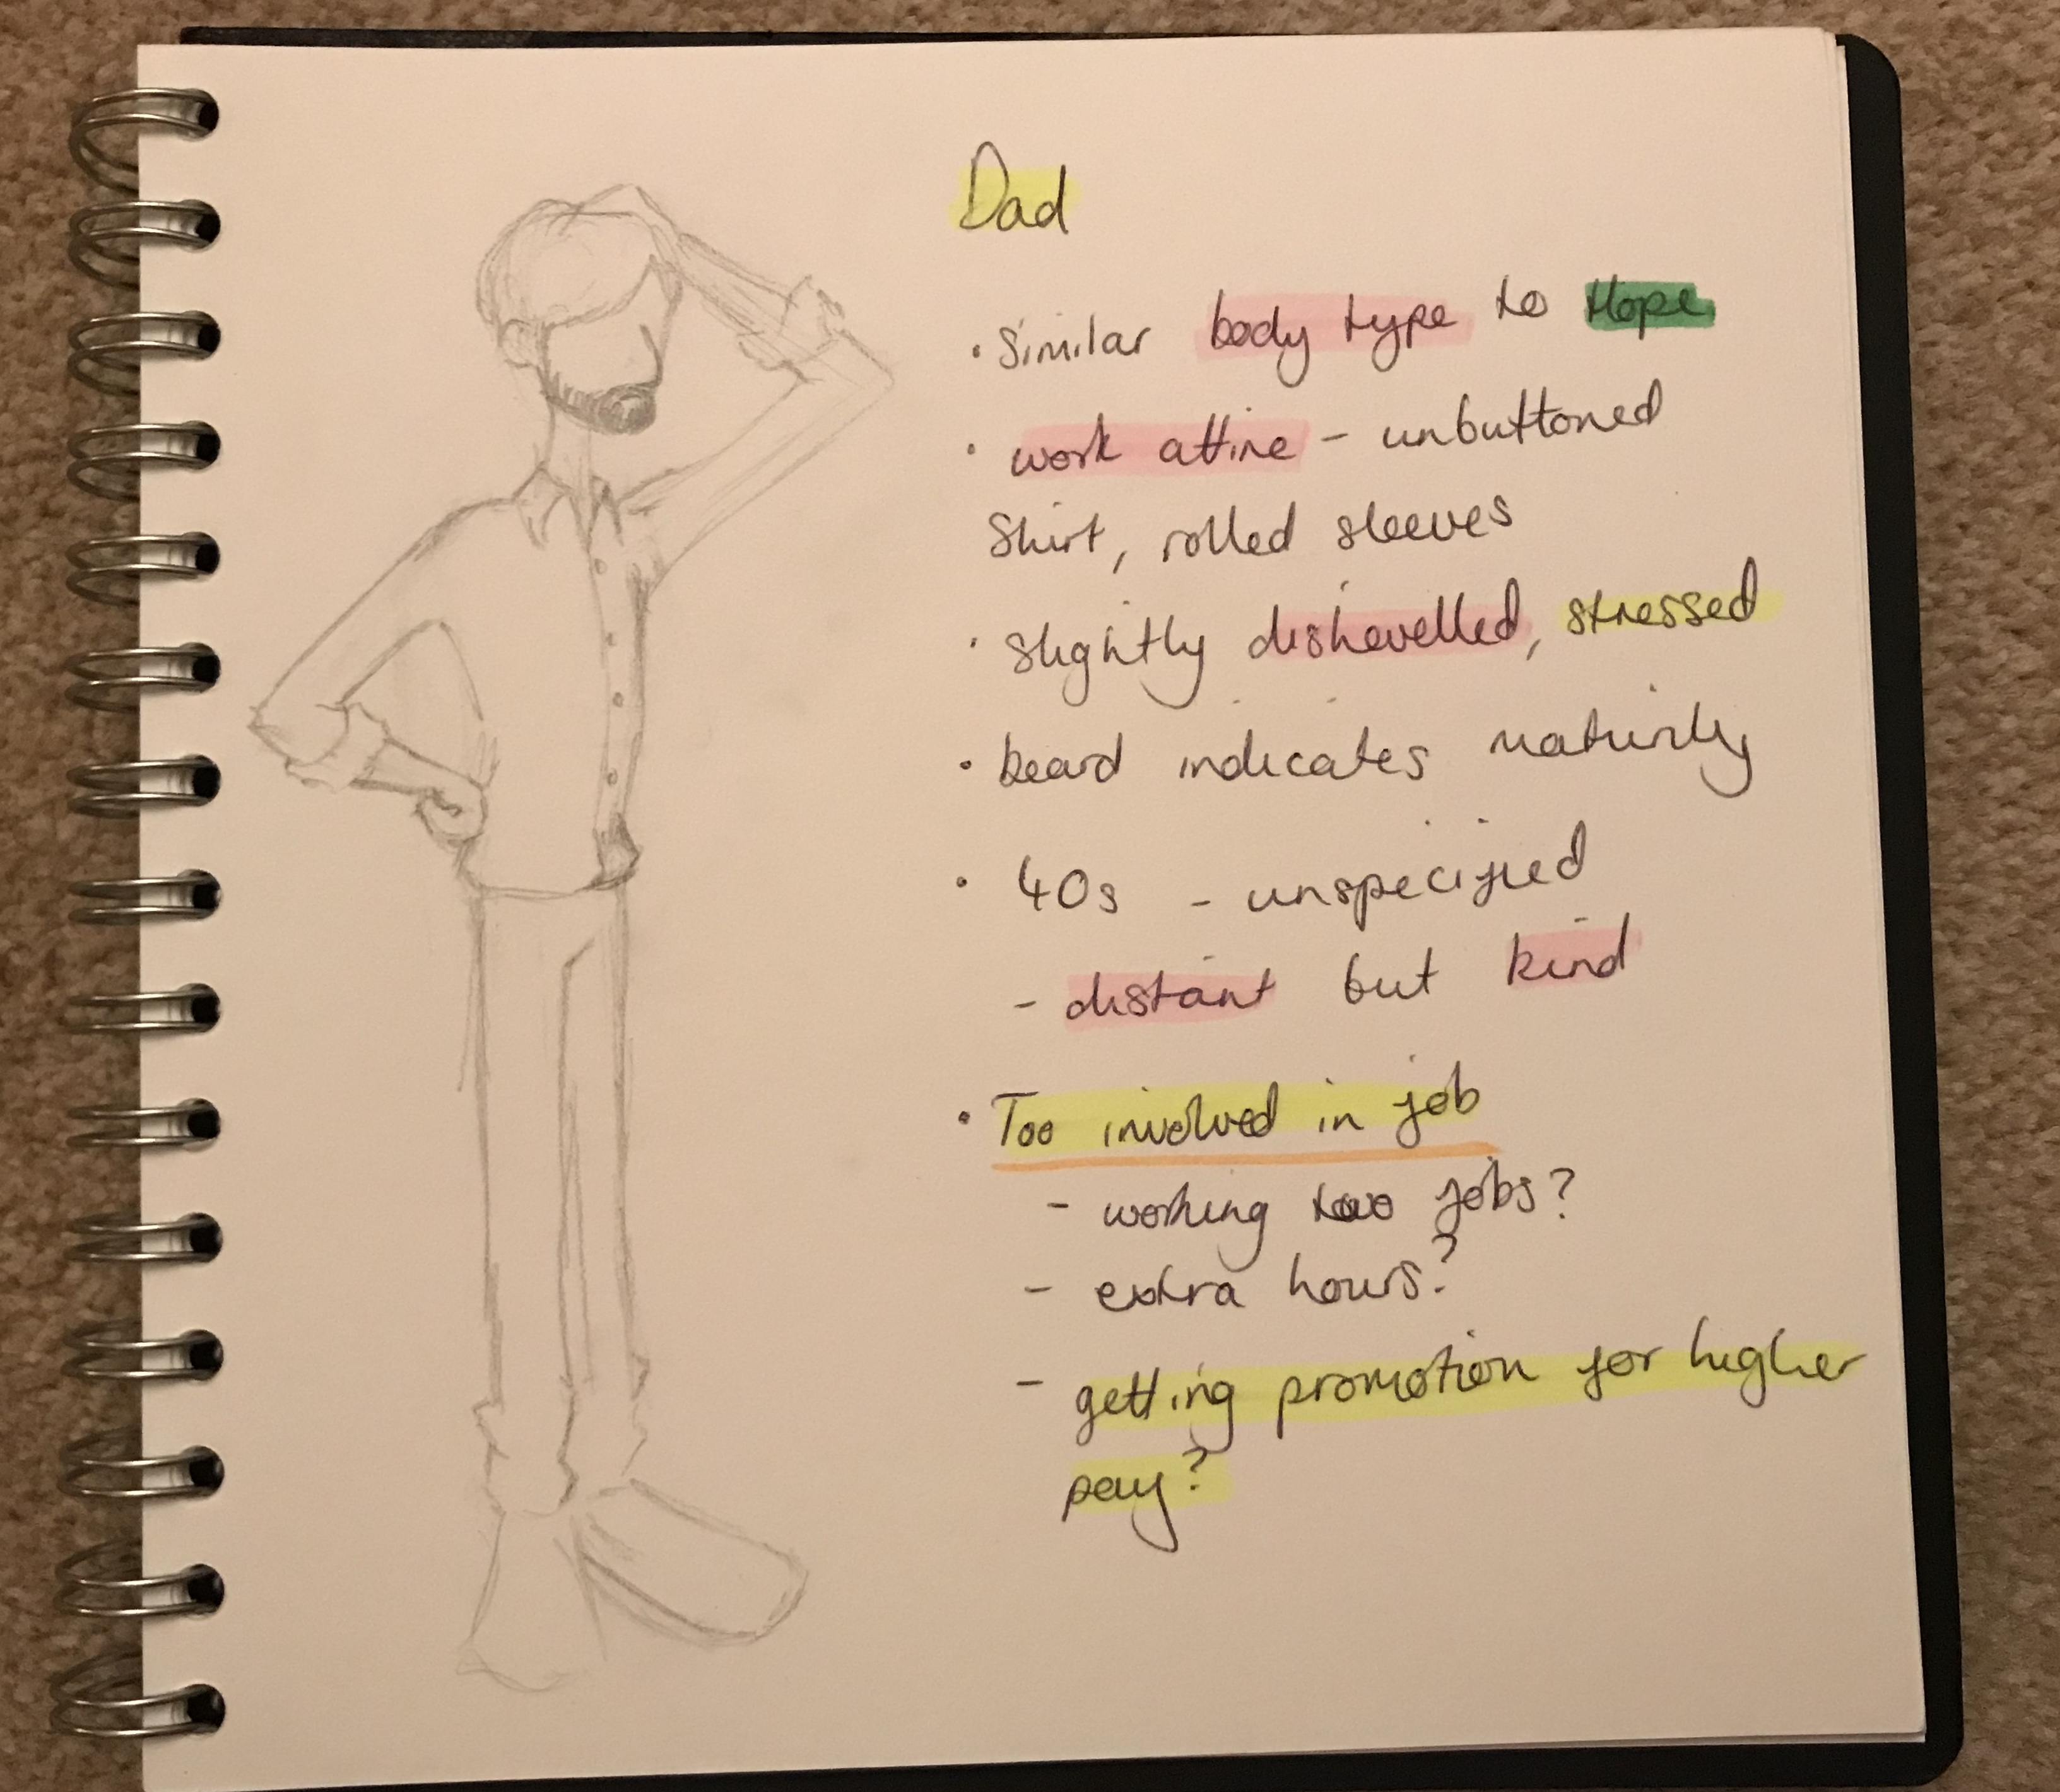 Dad
• Similar body type to Hope
• work attire - unbuttoned
Shirt, rolled sleeves
• slightly dishevelled, stressed
• beard indicates maturity
• 40s - unspecified
- distant but kind
• Too involved in job
- working two jobs?
- extra hours?
- getting promotion for higher
pay?